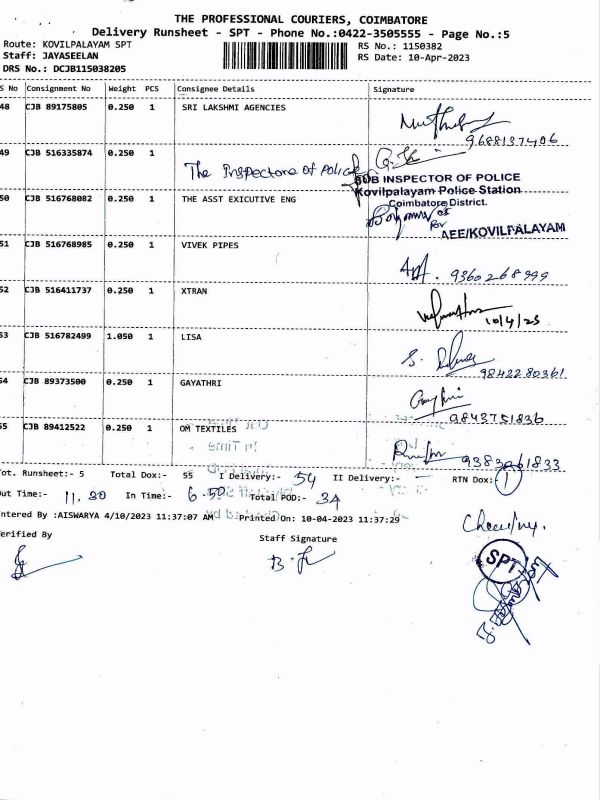 THE PROFESSIONAL COURIERS, COIMBATORE
Delivery Runsheet - SPT - Phone No.:0422-3505555 - Page No.:5
Route: KOVILPALAYAM SPT
RS No.: 1150382
Staff: JAYASEELAN
RS Date: 10-Apr-2023
DRS No.: DCJB115038205
S No Consignment No Weight PCS Consignee Details Signature
48 CJB 89175805 0.250 1 SRI LAKSHMI AGENCIES
9688137406
49 CJB 516335874 0.250 1 The Inspectore OF Police
SUB INSPECTOR OF POLICE
Kovilpalayam Police Station
Coimbatore District.
50 CJB 516768082 0.250 1 THE ASST EXICUTIVE ENG
For
AEE/KOVILPALAYAM
51 CJB 516768985 0.250 1 VIVEK PIPES
9360268999
52 CJB 516411737 0.250 1 XTRAN
10/4/23
53 CJB 516782499 1.050 1 LISA
9842280361
54 CJB 89373500 0.250 1 GAYATHRI
9843751836
55 CJB 89412522 0.250 1 OM TEXTILES
9383061833
Tot. Runsheet:- 5 Total Dox:- 55 I Delivery:- 54 II Delivery:- — RTN Dox:- 1
Out Time:- 11.30 In Time:- 6.50 Total POD:- 34
Entered By :AISWARYA 4/10/2023 11:37:07 AM Printed On: 10-04-2023 11:37:29
Verified By
Staff Signature
SPT